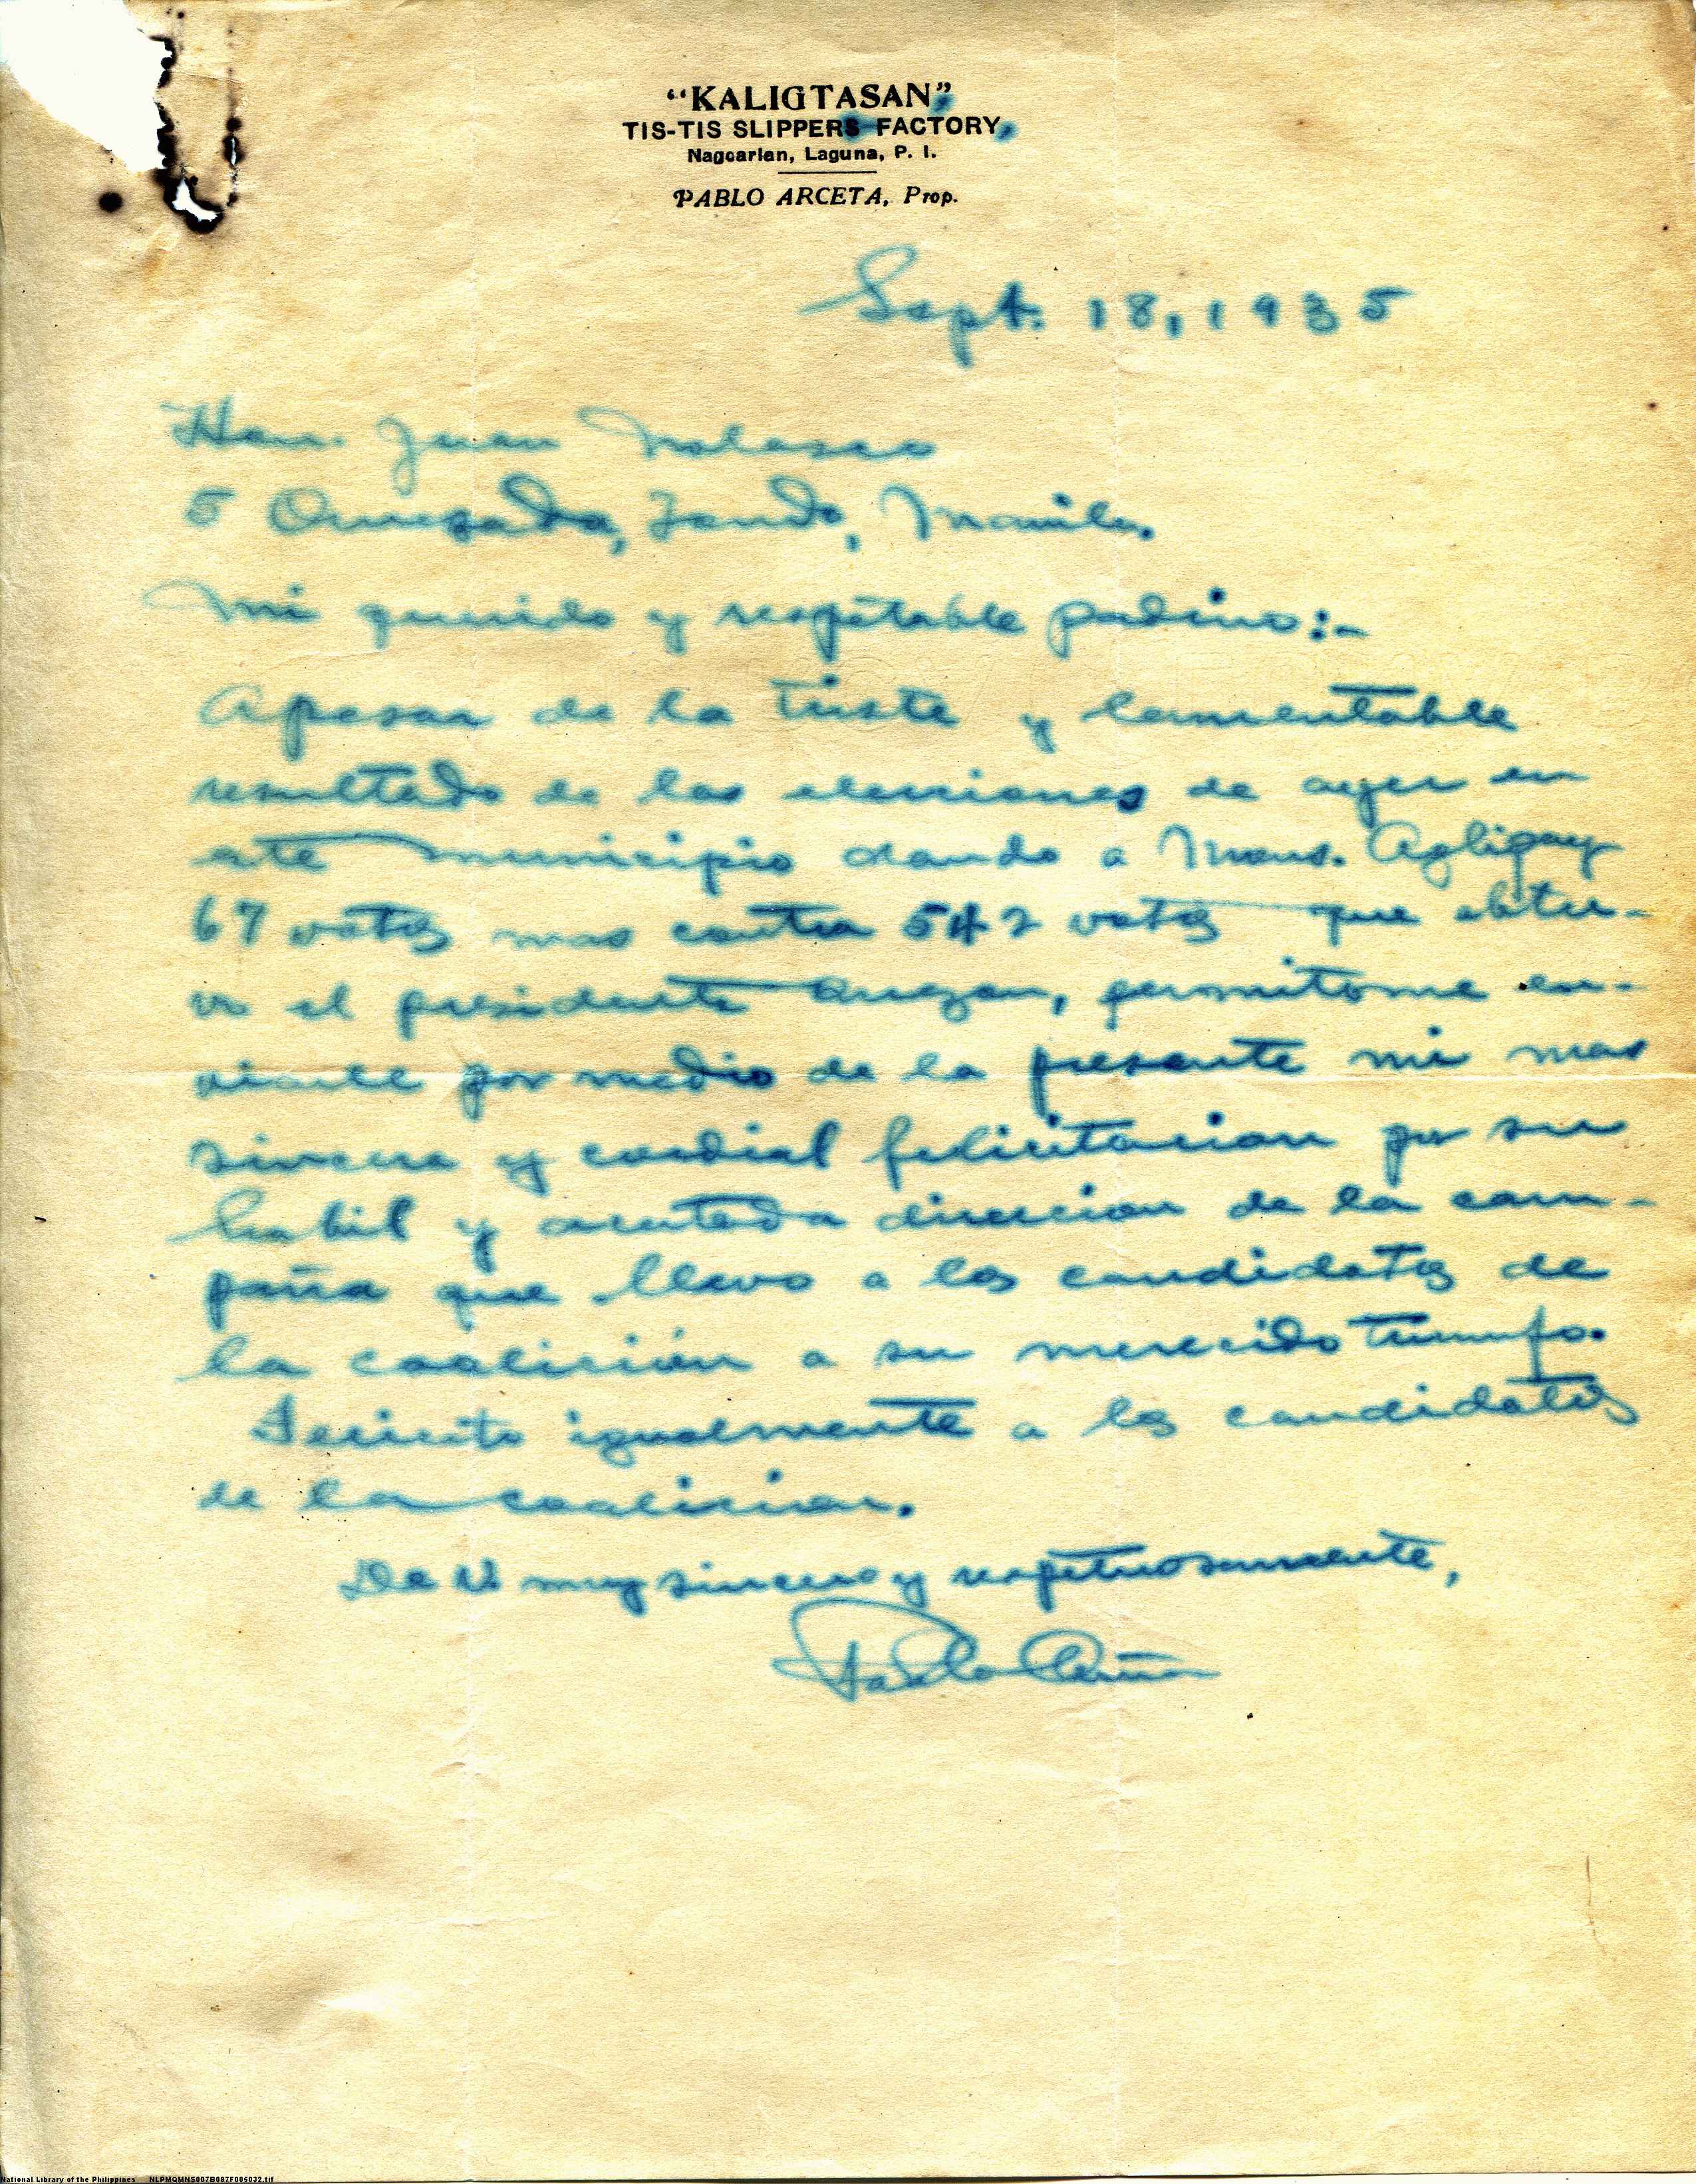 “KALIGTASAN”
TIS-TIS SLIPPERS FACTORY,
Nagcarlan, Laguna, P. I.
PABLO ARCETA, Prop.
Sept. 18, 1935
Hon. Juan Nolasco
5 Quesada, Tondo, Manila.
Mi querido y respetable padrino:-
Apesar de la triste y lamentable
resultado de las elecciones de ayer en
este municipio dando a Mons. Aglipay
67 votos mas contra 542 votos que obtu-
vo el presidente Quezon, permitome en-
viarle por medio de la presente mi mas
sincera y cordial felicitacion por su
habil y acertada direccion de la cam-
paña que llevo a los candidatos de
la coalición a su merecido triunfo.
Felicito igualmente a los candidatos
de la coalicion.
De V. muy sincero y respetuosamente,
Pablo Arceta
National Library of the Philippines NLPMQMNS007B067F006032.tif